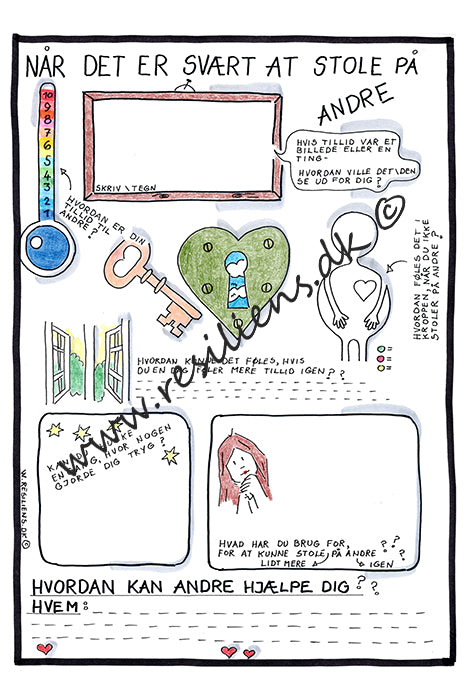 NÅR DET ER SVÆRT AT STOLE PÅ
ANDRE
10
9
8
7
6
5
4
3
2
1
HVORDAN ER DIN
TILLID TIL
ANDRE?
SKRIV \ TEGN
HVIS TILLID VAR ET
BILLEDE ELLER EN
TING-
HVORDAN VILLE DET\DEN
SE UD FOR DIG?
HVORDAN FØLES DET I
KROPPEN, NÅR DU IKKE
STOLER PÅ ANDRE?
HVORDAN KUNNE DET FØLES, HVIS
DU EN DAG FØLER MERE TILLID IGEN??
KAN DU HUSKE
EN GANG, HVOR NOGEN
GJORDE DIG TRYG?
HVAD HAR DU BRUG FOR,
FOR AT KUNNE STOLE PÅ ANDRE
LIDT MERE
IGEN
????
HVORDAN KAN ANDRE HJÆLPE DIG???
HVEM:
W.RESILIENS.DK ©
www.resiliens.dk ©